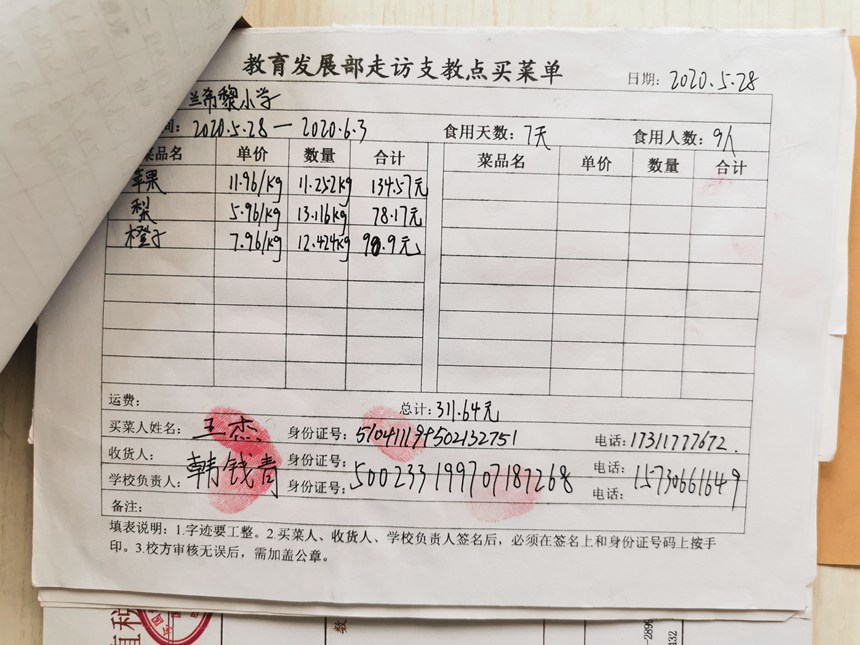 教育发展部走访支教点买菜单
日期: 2020.5.28
兰希黎小学
间: 2020.5.28 — 2020.6.3 食用天数: 7天 食用人数: 9人
菜品名 单价 数量 合计 菜品名 单价 数量 合计
苹果 11.96/kg 11.252kg 134.57元
梨 5.96/kg 13.116kg 78.17元
橙子 7.96/kg 12.424kg 98.9元
运费: 总计: 311.64元
买菜人姓名: 王杰 身份证号: 510411199502132751 电话: 17311777672.
收货人: 身份证号: 电话:
学校负责人: 韩钱青 身份证号: 500233199707187268 电话: 15730661649
备注:
填表说明: 1.字迹要工整。2.买菜人、收货人、学校负责人签名后，必须在签名上和身份证号码上按手
印。3.校方审核无误后，需加盖公章。